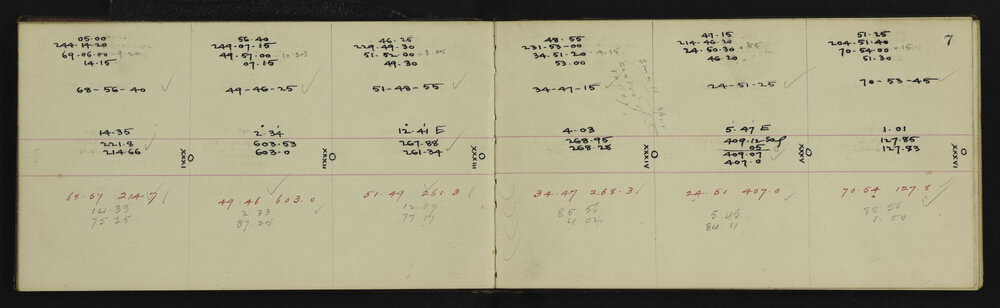 7
05.00
244-14-20
69-06-00 9.20
14.15
68-56-40
14.35
221.8
214.66
XXXI
68.57 214.7
14.33
75.25
56.40
249-07-15
49-57-00 10.35
07.15
49-46-25
2.34
603.53
603.0
XXXII
49.46 603.0
2.33
87.25
46.25
229-49-30
51-52-00 3.05
49.30
51-48-55
12.41 E
267.88
261.34
XXXIII
51.49 261.3
12.39
77.19
48.55
231-53-00
34-51-20 4.05
53.00
34-47-15
4.03
268.95
268.28
XXXIV
34.47 268.3
85.56
4.02
47-15
214-46-20
24-50-30 .55
46.20
24-51-25
5.47 E
409.12 Sag
.05
409.07
407.0
XXXV
24.51 407.0
5.45
84 11
51-25
204-51-40
70-54-00 .15
51.30
70-53-45
1.01
127.85
127.83
XXXVI
70.54 127.8
88 58
1.00